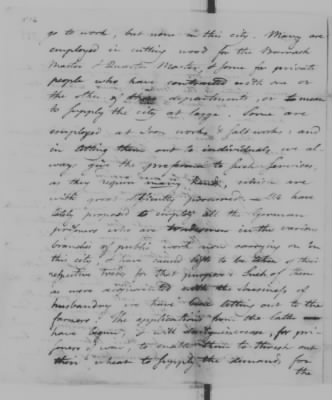 go to work, but none in this city. Many are
employed in cutting wood for the Barrack
Master & Quarter Master, & some for private
people who have contracted with one or
the other of these departments, or
to supply the city at large. Some are
employed at Iron works & salt works; and
in letting them out to individuals, we al
way give the preference to such services,
as they require many hands, which are
with great difficulty procured. We have
lately proposed to employ all the German
prisoners who are tradesmen in the various
branches of public work now carrying on in
this city & have caused lists to be taken of their
respective trades for that purpose & such of them
as were acquainted with the business of
husbandry we have been letting out to the
farmers. The applications from the latter
have begun, & will increase, for pri
soners of war, to enable them to thresh out
their wheat to supply the demand, for
the